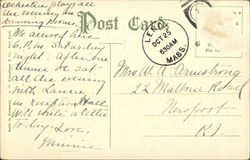 Orchestra plays all
the evening in
Drawing Room.
Post Card
We arrived here
6 P.M. Saturday
night. After
we sat
all the evening
with Laura
in reception Hall
Will write a letter
to-day. Love,
Minnie
LEE
OCT 25
630AM
MASS.
Mrs W. A. Armstrong
22 Malbone Road
Newport
R.I.